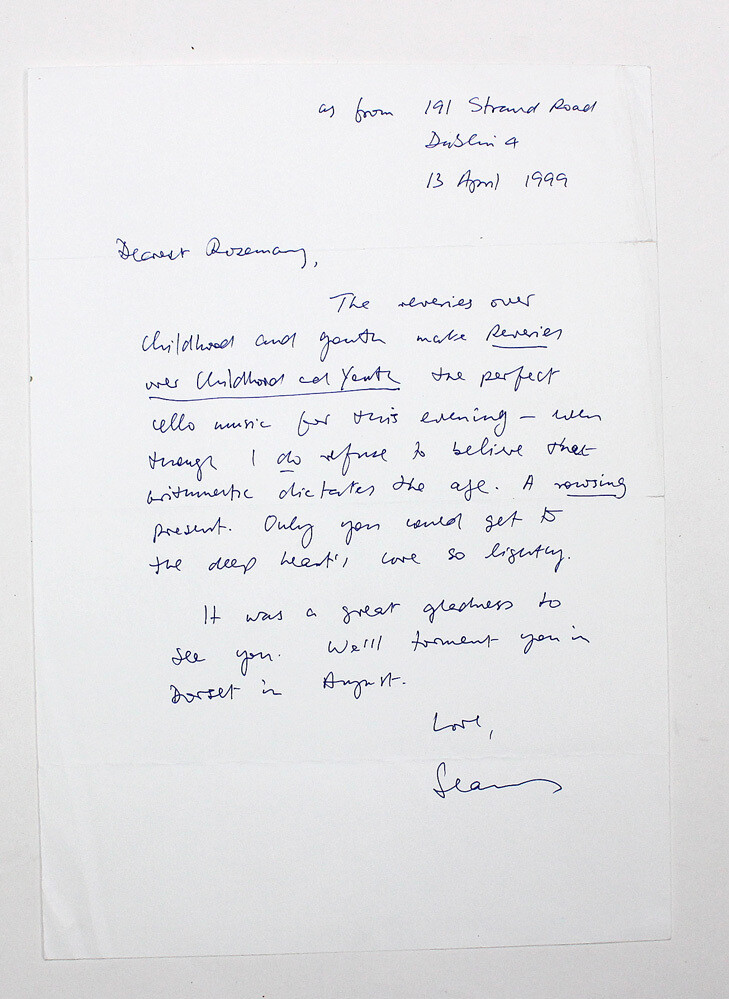 as from 191 Strand Road
Dublin 4
13 April 1999
Dearest Rosemary,
The reveries over
childhood and youth make Reveries
over Childhood and Youth the perfect
cello music for this evening — even
though I do refuse to believe that
arithmetic dictates the age. A rousing
present. Only you could get to
the deep heart's core so lightly.
It was a great gladness to
see you. We'll torment you in
Dorset in August.
Love,
Seamus